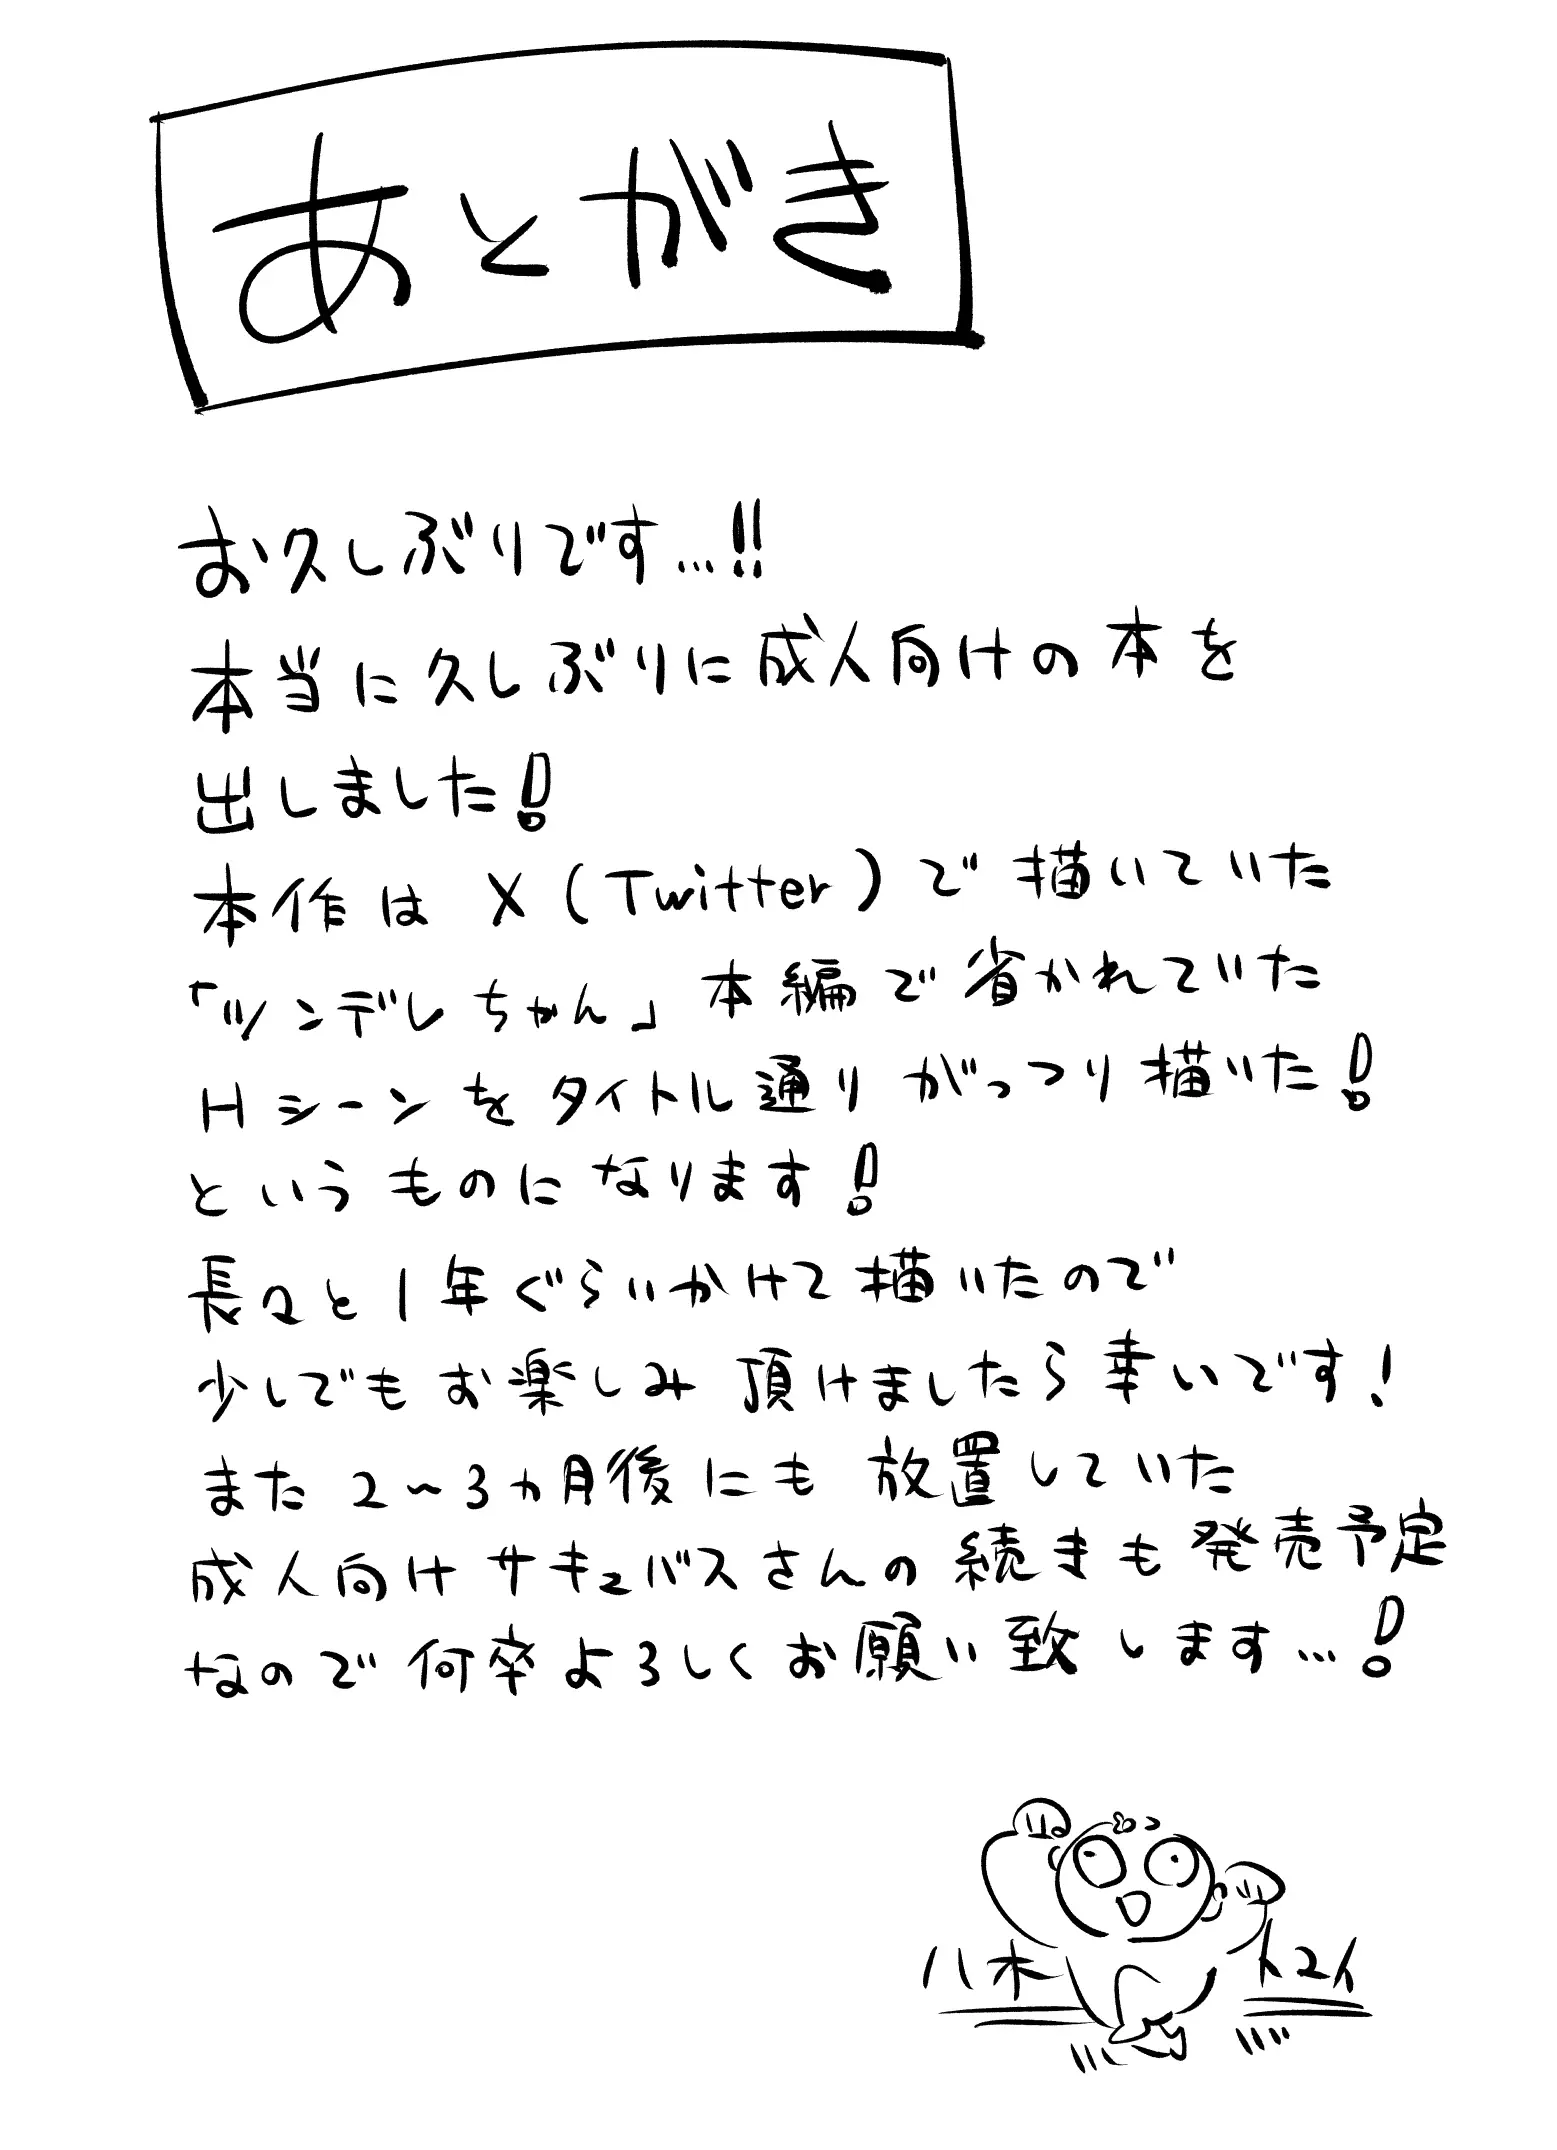 あとがき
お久しぶりです…!!
本当に久しぶりに成人向けの本を
出しました!
本作は X (Twitter) で 描いていた
「ツンデレちゃん」本編で省かれていた
Hシーンをタイトル通り がっつり描いた!
という ものに なります!
長々と1年ぐらいかけて描いたので
少しでもお楽しみ頂けましたら幸いです!
また 2~3ヵ月後にも 放置していた
成人向けサキュバスさんの続きも発売予定
なので何卒よろしくお願い致します…!
八木 トユイ